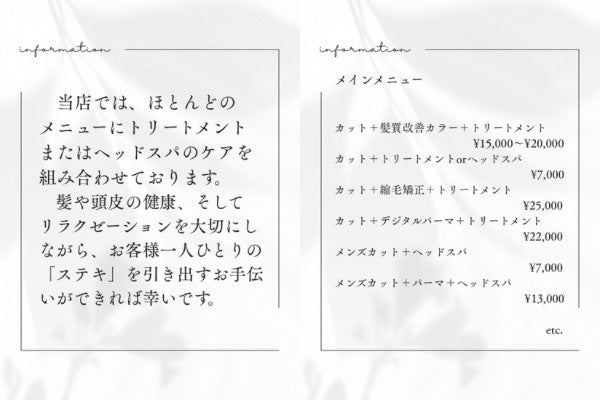 information
　当店では、ほとんどの
メニューにトリートメント
またはヘッドスパのケアを
組み合わせております。
　髪や頭皮の健康、そして
リラクゼーションを大切にし
ながら、お客様一人ひとりの
「ステキ」を引き出すお手伝
いができれば幸いです。
information
メインメニュー
カット＋髪質改善カラー＋トリートメント
¥15,000〜¥20,000
カット＋トリートメントorヘッドスパ
¥7,000
カット＋縮毛矯正＋トリートメント
¥25,000
カット＋デジタルパーマ＋トリートメント
¥22,000
メンズカット＋ヘッドスパ
¥7,000
メンズカット＋パーマ＋ヘッドスパ
¥13,000
etc.